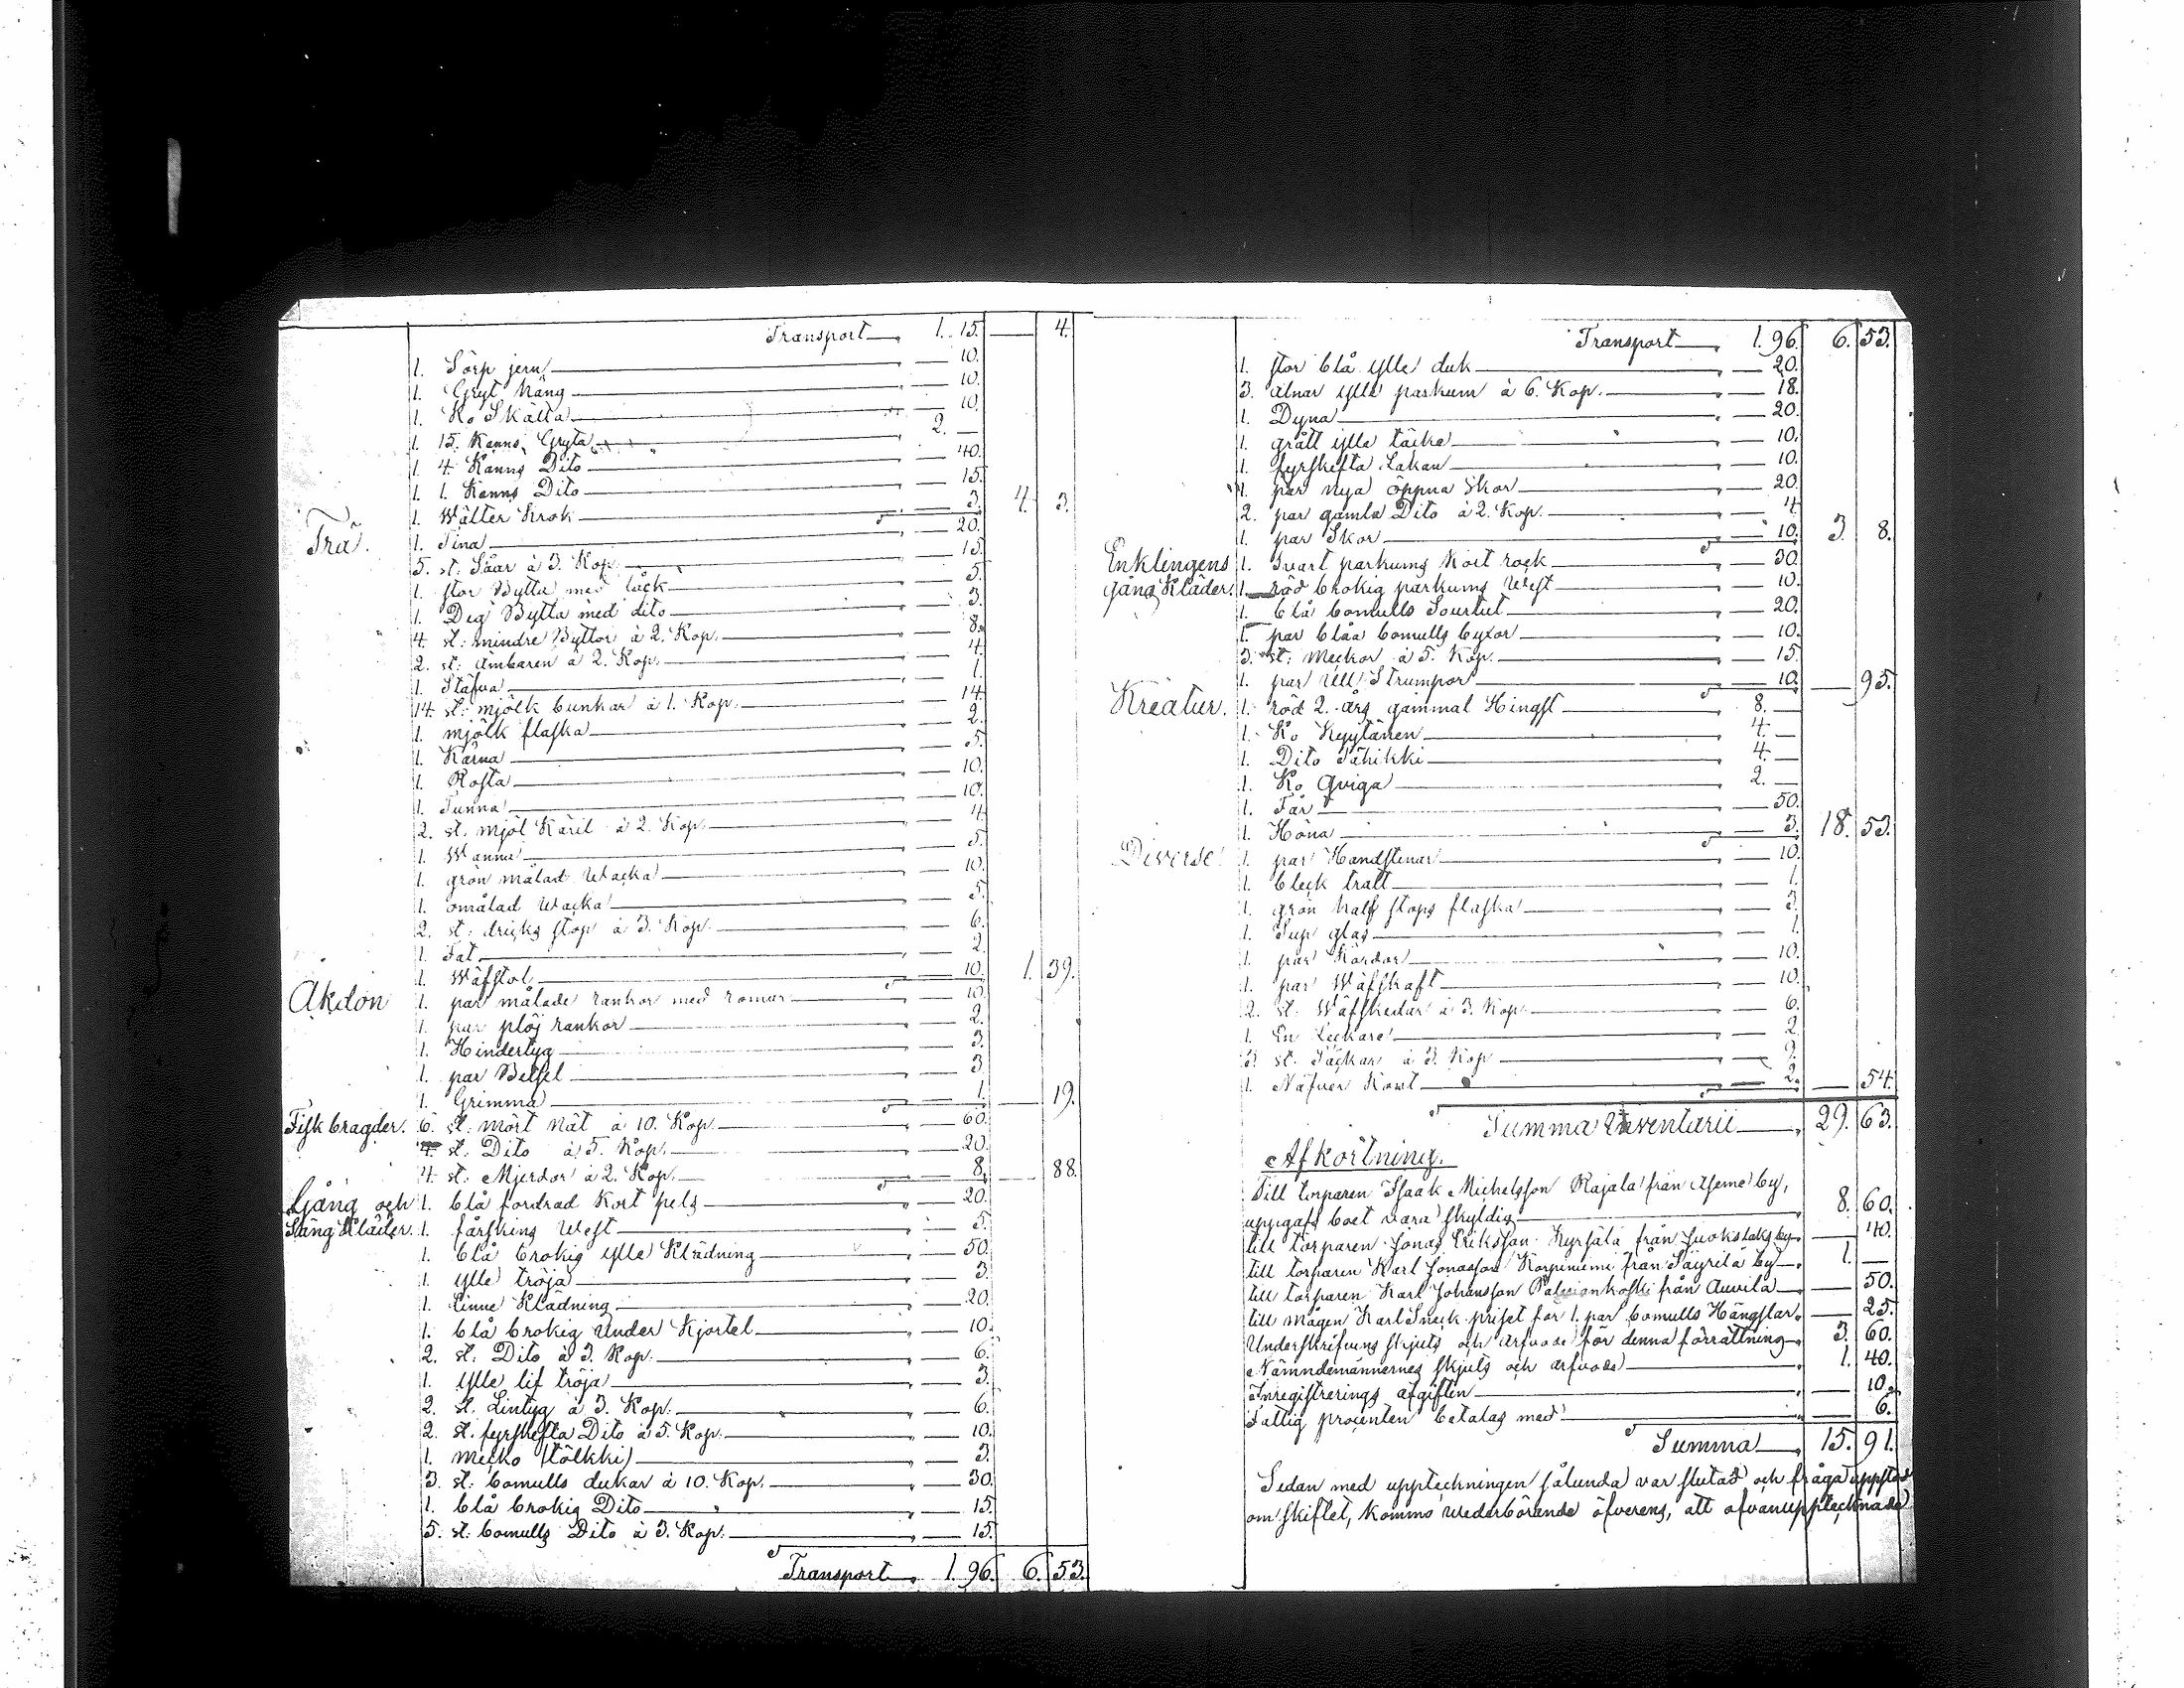 Transport 1. 15. — 4.
1. Sörp jern — 10.
1. Gryt häng — 10.
1. Ko Skälla — 10.
1. 15. Kanns Gryta 2. —
1. 4. Kanns Dito — 40.
1. 1. Kanns Dito — 15.
1. Wälter Krok — 3. 4. 3.
Trä. 1. Tina — 20.
5. st: Såar à 3. Kop. — 15.
1. stor Bytta med låck — 5.
1. Deg Bytta med dito — 3.
4. st: mindre Byttor à 2. Kop. — 8.
2. st: Ämbaren à 2. Kop. — 4.
1. Stäfva — 1.
14. st: mjölk bunkar à 1. Kop. — 14.
1. mjölk flaska — 2.
1. Kärna — 5.
1. Rosta — 10.
1. Tunna — 10.
2. st. mjöl Käril à 2. Kop. — 4.
1. Wanna — 5.
1. grön målad Wacka — 10.
1. omålad Wacka — 5.
2. st: dricks stop à 3. Kop. — 6.
1. Fat — 2.
1. Wäfstol — 10. 1. 39.
Åkdon 1. par målade rankor med romar — 10.
1. par plöj rankor — 2.
1. Hindertyg — 3.
1. par Betsel — 3.
1. Grimma — 1. — 19.
Fisk bragder. 6. st: mört Nät à 10. Kop. — 60.
4. st. Dito à 5. Kop. — 20.
4. st: Mjerdor à 2. Kop. — 8. — 88.
Gång och 1. blå fordrad Kort pels — 20.
Säng Kläder. 1. fårskins West — 5.
1. blå brokig ylle Klädning — 50.
1. ylle tröja — 3.
1. Linne Klädning — 20.
1. blå brokig Under Kjortel — 10.
2. st: Dito à 3. Kop. — 6.
1. ylle lif tröja — 3.
2. st. Lintyg à 3. Kop. — 6.
2. st. fyrskefta Dito à 5. Kop. — 10.
1. mecko (tölkki) — 3.
3. st: bomulls dukar à 10. Kop. — 30.
1. blå brokig Dito — 15.
5. st: bomulls Dito à 3. Kop. — 15.
Transport 1. 96. 6. 53.
Transport 1. 96. 6. 53.
1. stor blå ylle duk — 20.
3. alnar ylle parkum à 6. Kop. — 18.
1. Dyna — 20.
1. grått ylle täcke — 10.
1. fyrskefta Lakan — 10.
1. par nya öppna skor — 20.
2. par gamla Dito à 2. Kop. — 4.
1. par Skor — 10. 3. 8.
Enklingens 1. Svart parkums Kort rock — 30.
gång Kläder. 1. röd brokig parkums West — 10.
1. blå bomulls Sourtut — 20.
1. par blåa bomulls byxor — 10.
3. st: meckor à 5. Kop. — 15.
1. par Ull Strumpor — 10. — 95.
Kreatur. 1. röd 2. års gammal Hingst 8. —
1. Ko Kyytänen 4. —
1. Dito Tähikki 4. —
1. Ko Qviga 2. —
1. Får — 50.
1. Höna — 3. 18. 53.
Diverse 1. par Handstenar — 10.
1. bleck tratt — 1.
1. grön half stops flaska — 3.
1. Sup glas — 1.
1. par Kardor — 10.
1. par Wäfskaft — 10.
2. st. Wäfskedar à 3. Kop. — 6.
1. En Leckare — 2.
3. st. Säckar à 3. Kop — 9.
1. Näfver Kont — 2. — 54.
Summa Inventarii 29. 63.
Afkortning.
Till torparen Isaak Michelsson Rajala från Aseme by,
uppgafs boet vara skyldig 8. 60.
till torparen Jonas Eriksson Kyrjälä från Juokslaks by — 40.
till torparen Karl Jonasson Korpiniemi från Säyrilä by 1. —
till torparen Karl Johansson från Auvila — 50.
till mågen Karl Sneck priset för 1. par bomulls Hängslar — 25.
Underskrifvens skjuts och arfvode för denna förrättning 3. 60.
Nämndemännernes skjuts och arfvode 1. 40.
Inregistrerings afgiften — 10.
Fattig procenten betalas med — 6.
Summa 15. 91.
Sedan med uppteckningen sålunda var slutad och fråga uppstod
om skiftet, kommo wederbörande öfverens, att ofvanupptecknade